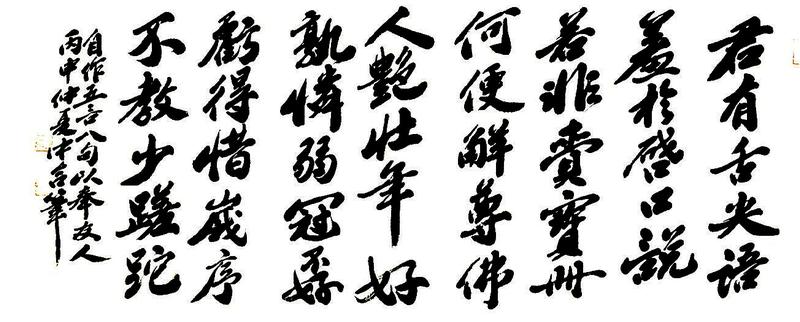 君有舌尖語
羞於啓口說
若非賣寶冊
何便解尊佛
人艷壯年好
孰憐弱冠孬
虧得惜歲序
不教少蹉跎
自作五言八句以奉友人
丙申仲夏筆